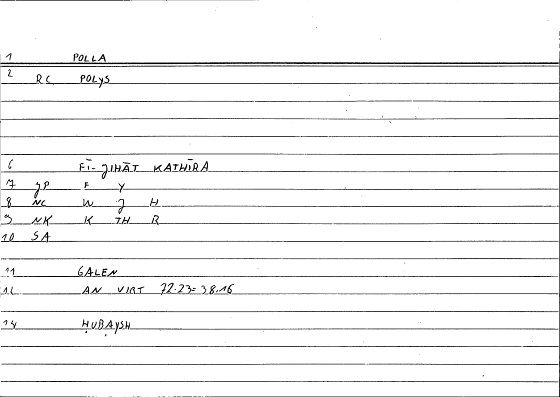 1 POLLA
2 RC POLYS
6 FĪ-JIHĀT KATHĪRA
7 JP F Y
8 NC W J H
9 NK K TH R
10 SA
11 GALEN
12 AN VIRT 72.23=38.16
14 ḤUBAYSH